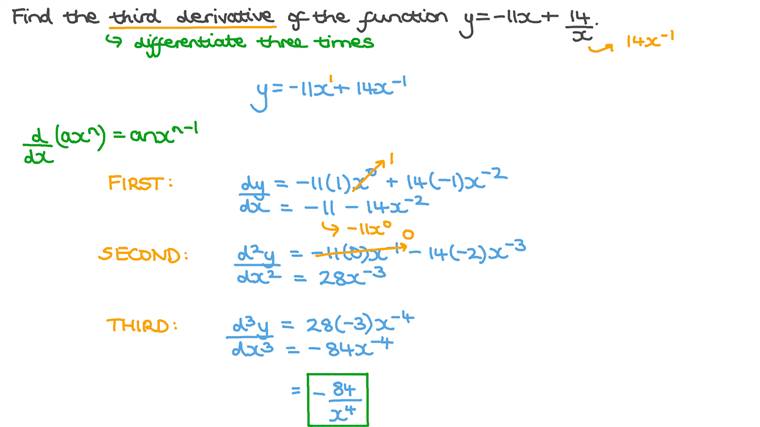 Find the third derivative of the function y = -11x + 14/x.
↳ differentiate three times
↳ 14x⁻¹
y = -11x¹ + 14x⁻¹
d/dx (axⁿ) = anxⁿ⁻¹
FIRST: dy/dx = -11(1)x⁰ + 14(-1)x⁻²
1
= -11 - 14x⁻²
↳ -11x⁰
SECOND: d²y/dx² = -11(0)x⁻¹ - 14(-2)x⁻³
0
= 28x⁻³
THIRD: d³y/dx³ = 28(-3)x⁻⁴
= -84x⁻⁴
= -84/x⁴